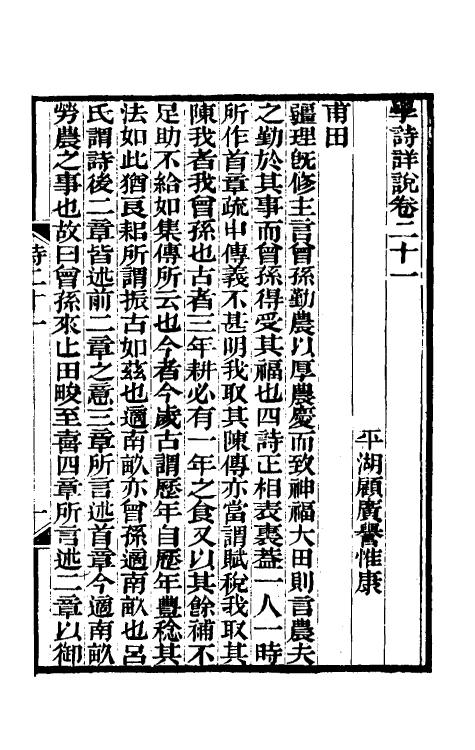 學詩詳說卷二十一
平湖顧廣譽惟康
甫田
疆理旣修主言曾孫勤農以厚農慶而致神福大田則言農夫
之勤於其事而曾孫得受其福也四詩正相表裏葢一人一時
所作首章疏申傳義不甚明我取其陳傳亦當謂賦稅我取其
陳我者我曾孫也古者三年耕必有一年之食又以其餘補不
足助不給如集傳所云也今者今歲古謂歷年自歷年豐稔其
法如此猶良耜所謂振古如茲也適南畝亦曾孫適南畝也呂
氏謂詩後二章皆述前二章之意三章所言述首章今適南畝
勞農之事也故曰曾孫來止田畯至喜四章所言述二章以御
詩二十一
一